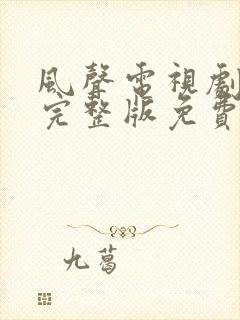 風聲電視劇
完整版免費
九葛